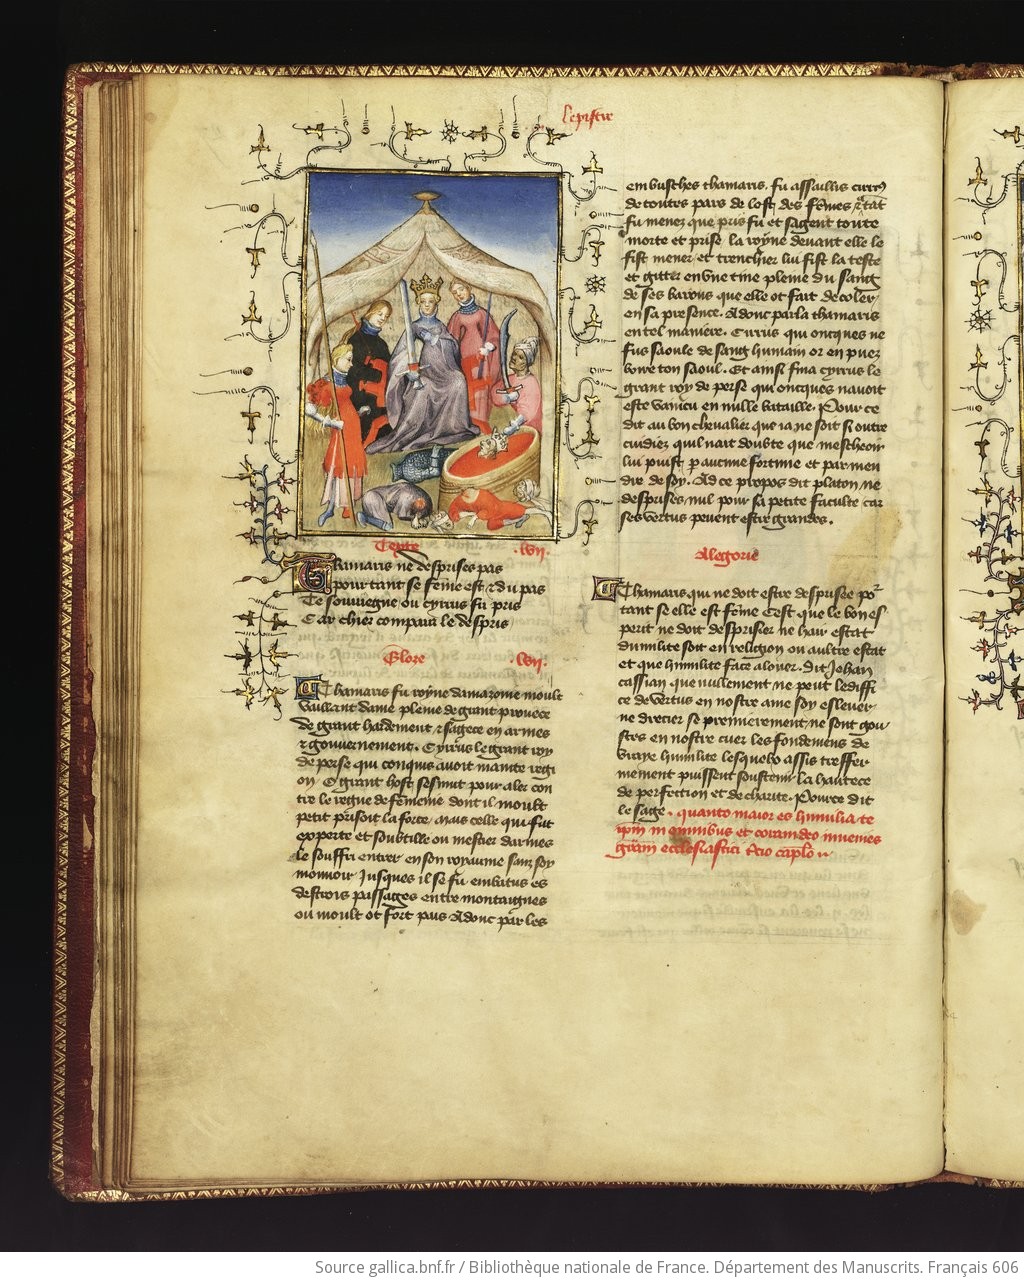 lepistre
Texte .lvii.
Thamaris ne desprises pas
pour tant se feme est et du pas
Te souviegne ou cyrus fu pris
Car chier compara le despris
Glose .lvii.
Thamaris fu royne damazome moult
vaillant dame pleine de grant prouece
de grant hardement et sagece en armes
et gouvernement. Cyrus le grant roy
de perse qui conquis avoit mainte regi
on O grant host sesmut pour aler con
tre le regne de femenie dont il moult
petit prisoit la force, mais celle qui fut
experte et soubtille ou mestier darmes
le souffri entrer en son royaume sans soy
mouvoir Jusques il se fu embatus es
destrois passages entre montaignes
ou moult ot fort pais Adonc par les
embusches thamaris. fu assaillis cirus
de toutes pars de lost des femes et tat
fu menez que pris fu et sa gent toute
morte et prise la royne devant elle le
fist mener et trenchier lui fist la teste
et gitter en une tine pleine du sang
de ses barons que elle ot fait decoler
en sa presence. Adonc parla thamaris
en tel maniere. Cirrus qui oncques ne
fus saoule de sang humain or en puez
boire ton saoul. Et ainsi fina cyrrus le
grant roy de perse qui oncques navoit
este vaincu en nulle bataille. Pour ce
dit au bon chevalier que ia ne soit si oultre
cuidiez quil nait doubte que mescheoir
lui puist p aucune fortune et par men
dre de soy. Ad ce propos dit platon ne
desprises nul pour sa petite faculte car
ses vertus peuent estre grandes.
Alegorie
Thamaris qui ne doit estre desprisee por
tant se elle est feme Cest que le bon es
perit ne doit desprisier ne hair estat
dumilite soit en religion ou aultre estat
et que humilite face a louer. dit Jehan
cassian que nullement ne peut lediffi
ce de vertus en nostre ame soy eslever
ne drecier se premierement ne sont gou
stes en nostre cuer les fondemens de
vraye humilite lesquelx assis tresfer
mement puissent soustenir la hautece
de perfection et de charite. Pour ce dit
le sage. quanto maior es humilia te
ipm in omnibus et coram deo invenies
gram ecclesiastici
Source gallica.bnf.fr / Bibliothèque nationale de France. Département des Manuscrits. Français 606